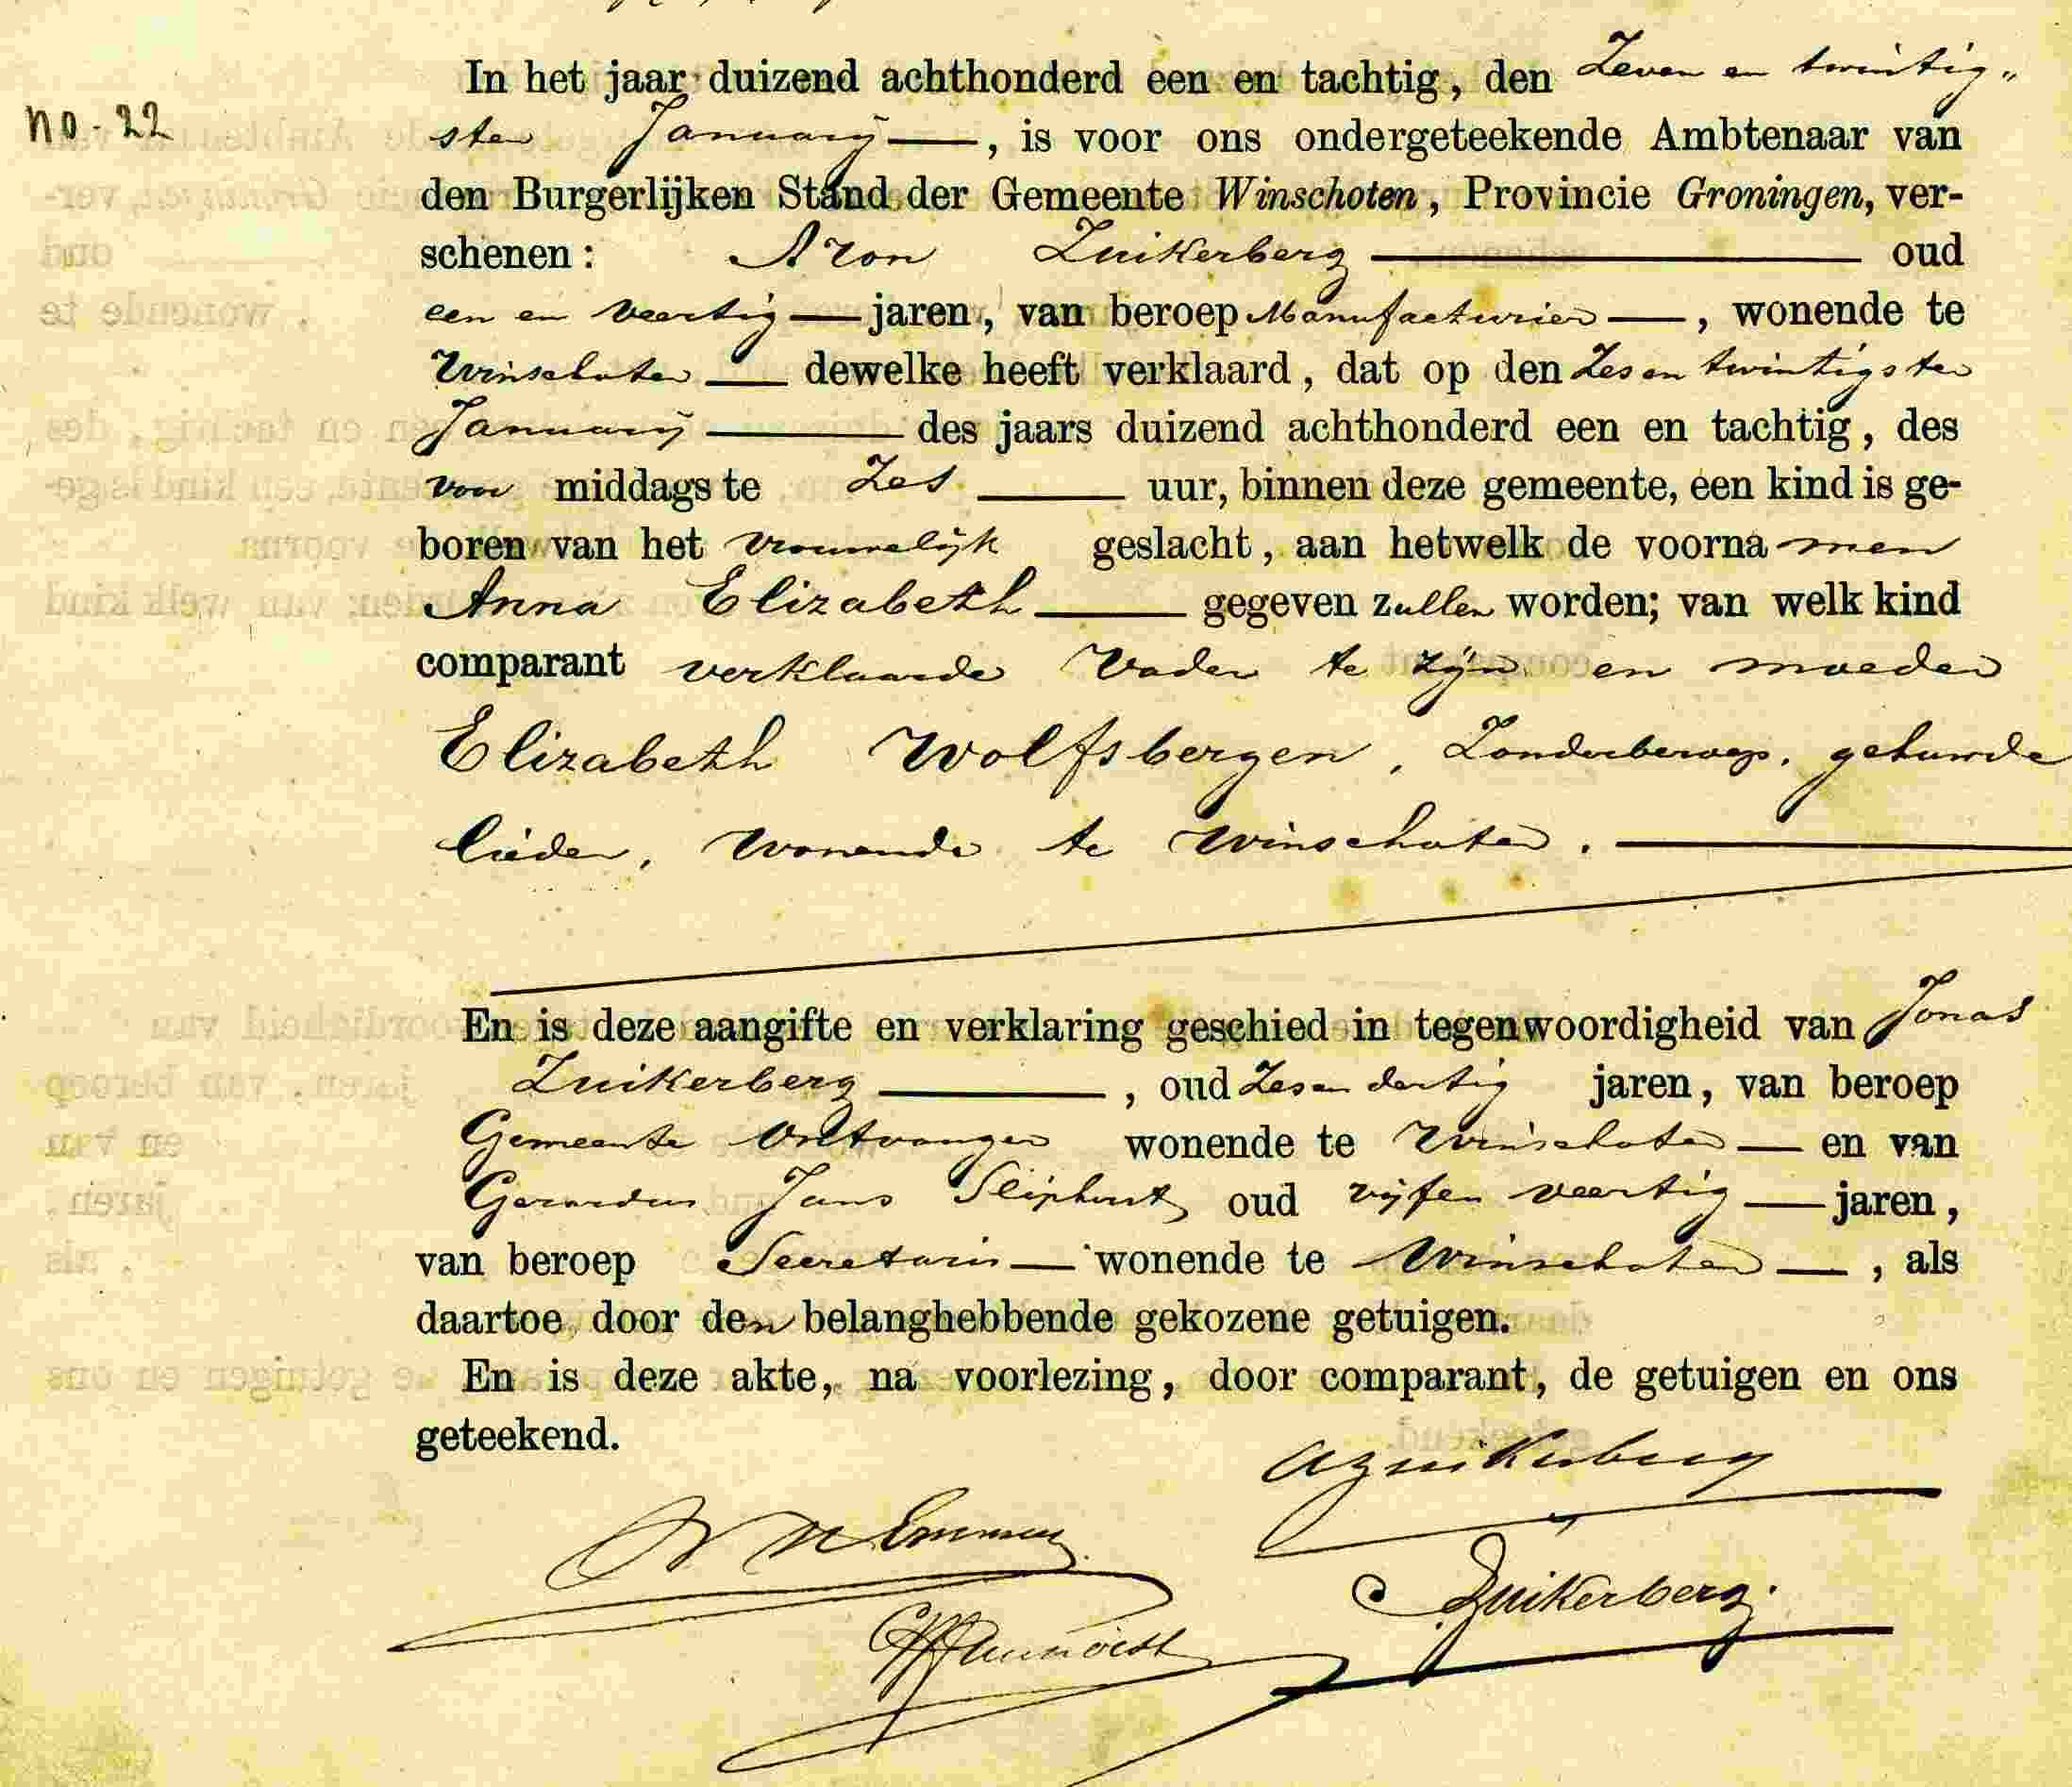 No. 22
In het jaar duizend achthonderd een en tachtig, den Zeven en twintig„
sten January —, is voor ons ondergeteekende Ambtenaar van
den Burgerlijken Stand der Gemeente Winschoten, Provincie Groningen, ver-
schenen: Aron Zuikerberg — oud
een en veertig — jaren, van beroep Manufacturier —, wonende te
Winschoten — dewelke heeft verklaard, dat op den Zes en twintigsten
January — des jaars duizend achthonderd een en tachtig, des
voor middags te Zes — uur, binnen deze gemeente, een kind is ge-
boren van het vrouwelijk geslacht, aan hetwelk de voorna men
Anna Elizabeth — gegeven zullen worden; van welk kind
comparant verklaarde Vader te zijn en moeder
Elizabeth Wolfsbergen, Zonder beroep, gehuwde
lieden, wonende te Winschoten. —
En is deze aangifte en verklaring geschied in tegenwoordigheid van Jonas
Zuikerberg —, oud Zes en dertig jaren, van beroep
Gemeente Ontvanger wonende te Winschoten — en van
Gerardus Jans oud vijf en veertig — jaren,
van beroep Secretaris — wonende te Winschoten —, als
daartoe door den belanghebbende gekozene getuigen.
En is deze akte, na voorlezing, door comparant, de getuigen en ons
geteekend.
A Zuikerberg
Zuikerberg.